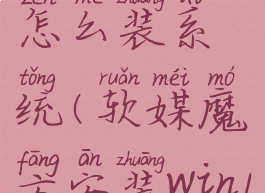 zěn me zhuāng xì
怎么装系
tǒng ruǎn méi mó
统(软媒魔
fāng ān zhuāng
方安装win